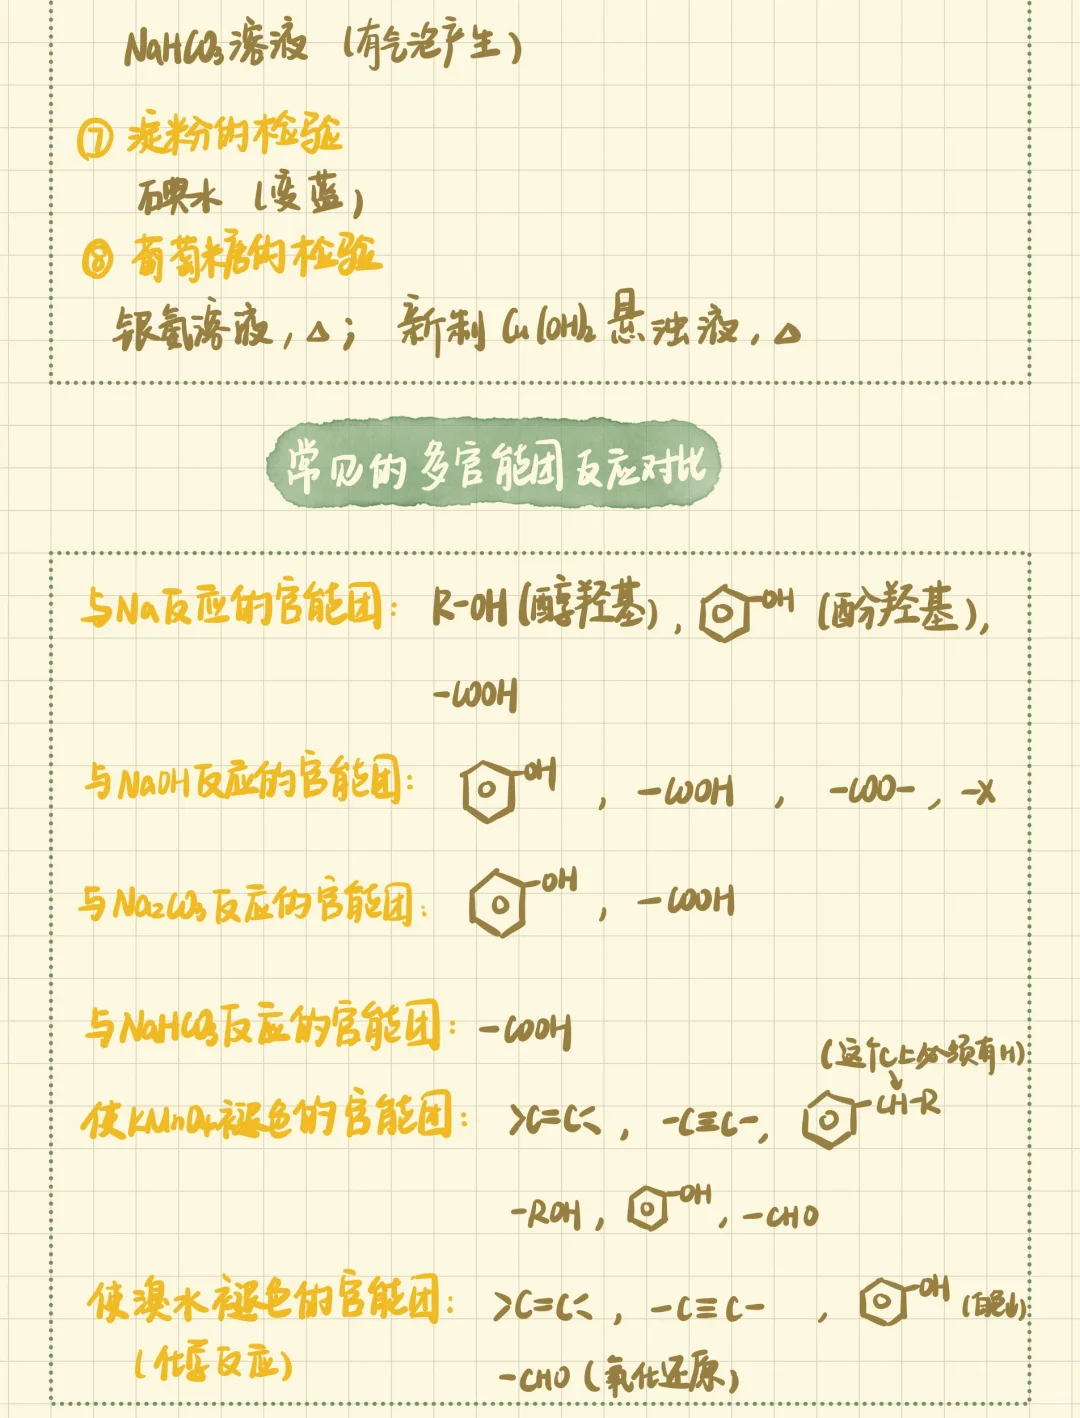 NaHCO₃溶液 (有气泡产生)
⑦ 淀粉的检验
碘水 (变蓝)
⑧ 葡萄糖的检验
银氨溶液,△; 新制Cu(OH)₂悬浊液,△
常见的多官能团反应对比
与Na反应的官能团: R-OH(醇羟基), -OH (酚羟基),
-COOH
与NaOH反应的官能团: -OH , -COOH , -COO- , -X
与Na₂CO₃反应的官能团: -OH , -COOH
与NaHCO₃反应的官能团: -COOH
(这个C上必须有H)
使KMnO₄褪色的官能团: >C=C< , -C≡C-, -CH-R
-ROH , -OH , -CHO
使溴水褪色的官能团: >C=C< , -C≡C- , -OH
(化学反应) -CHO (氧化还原)